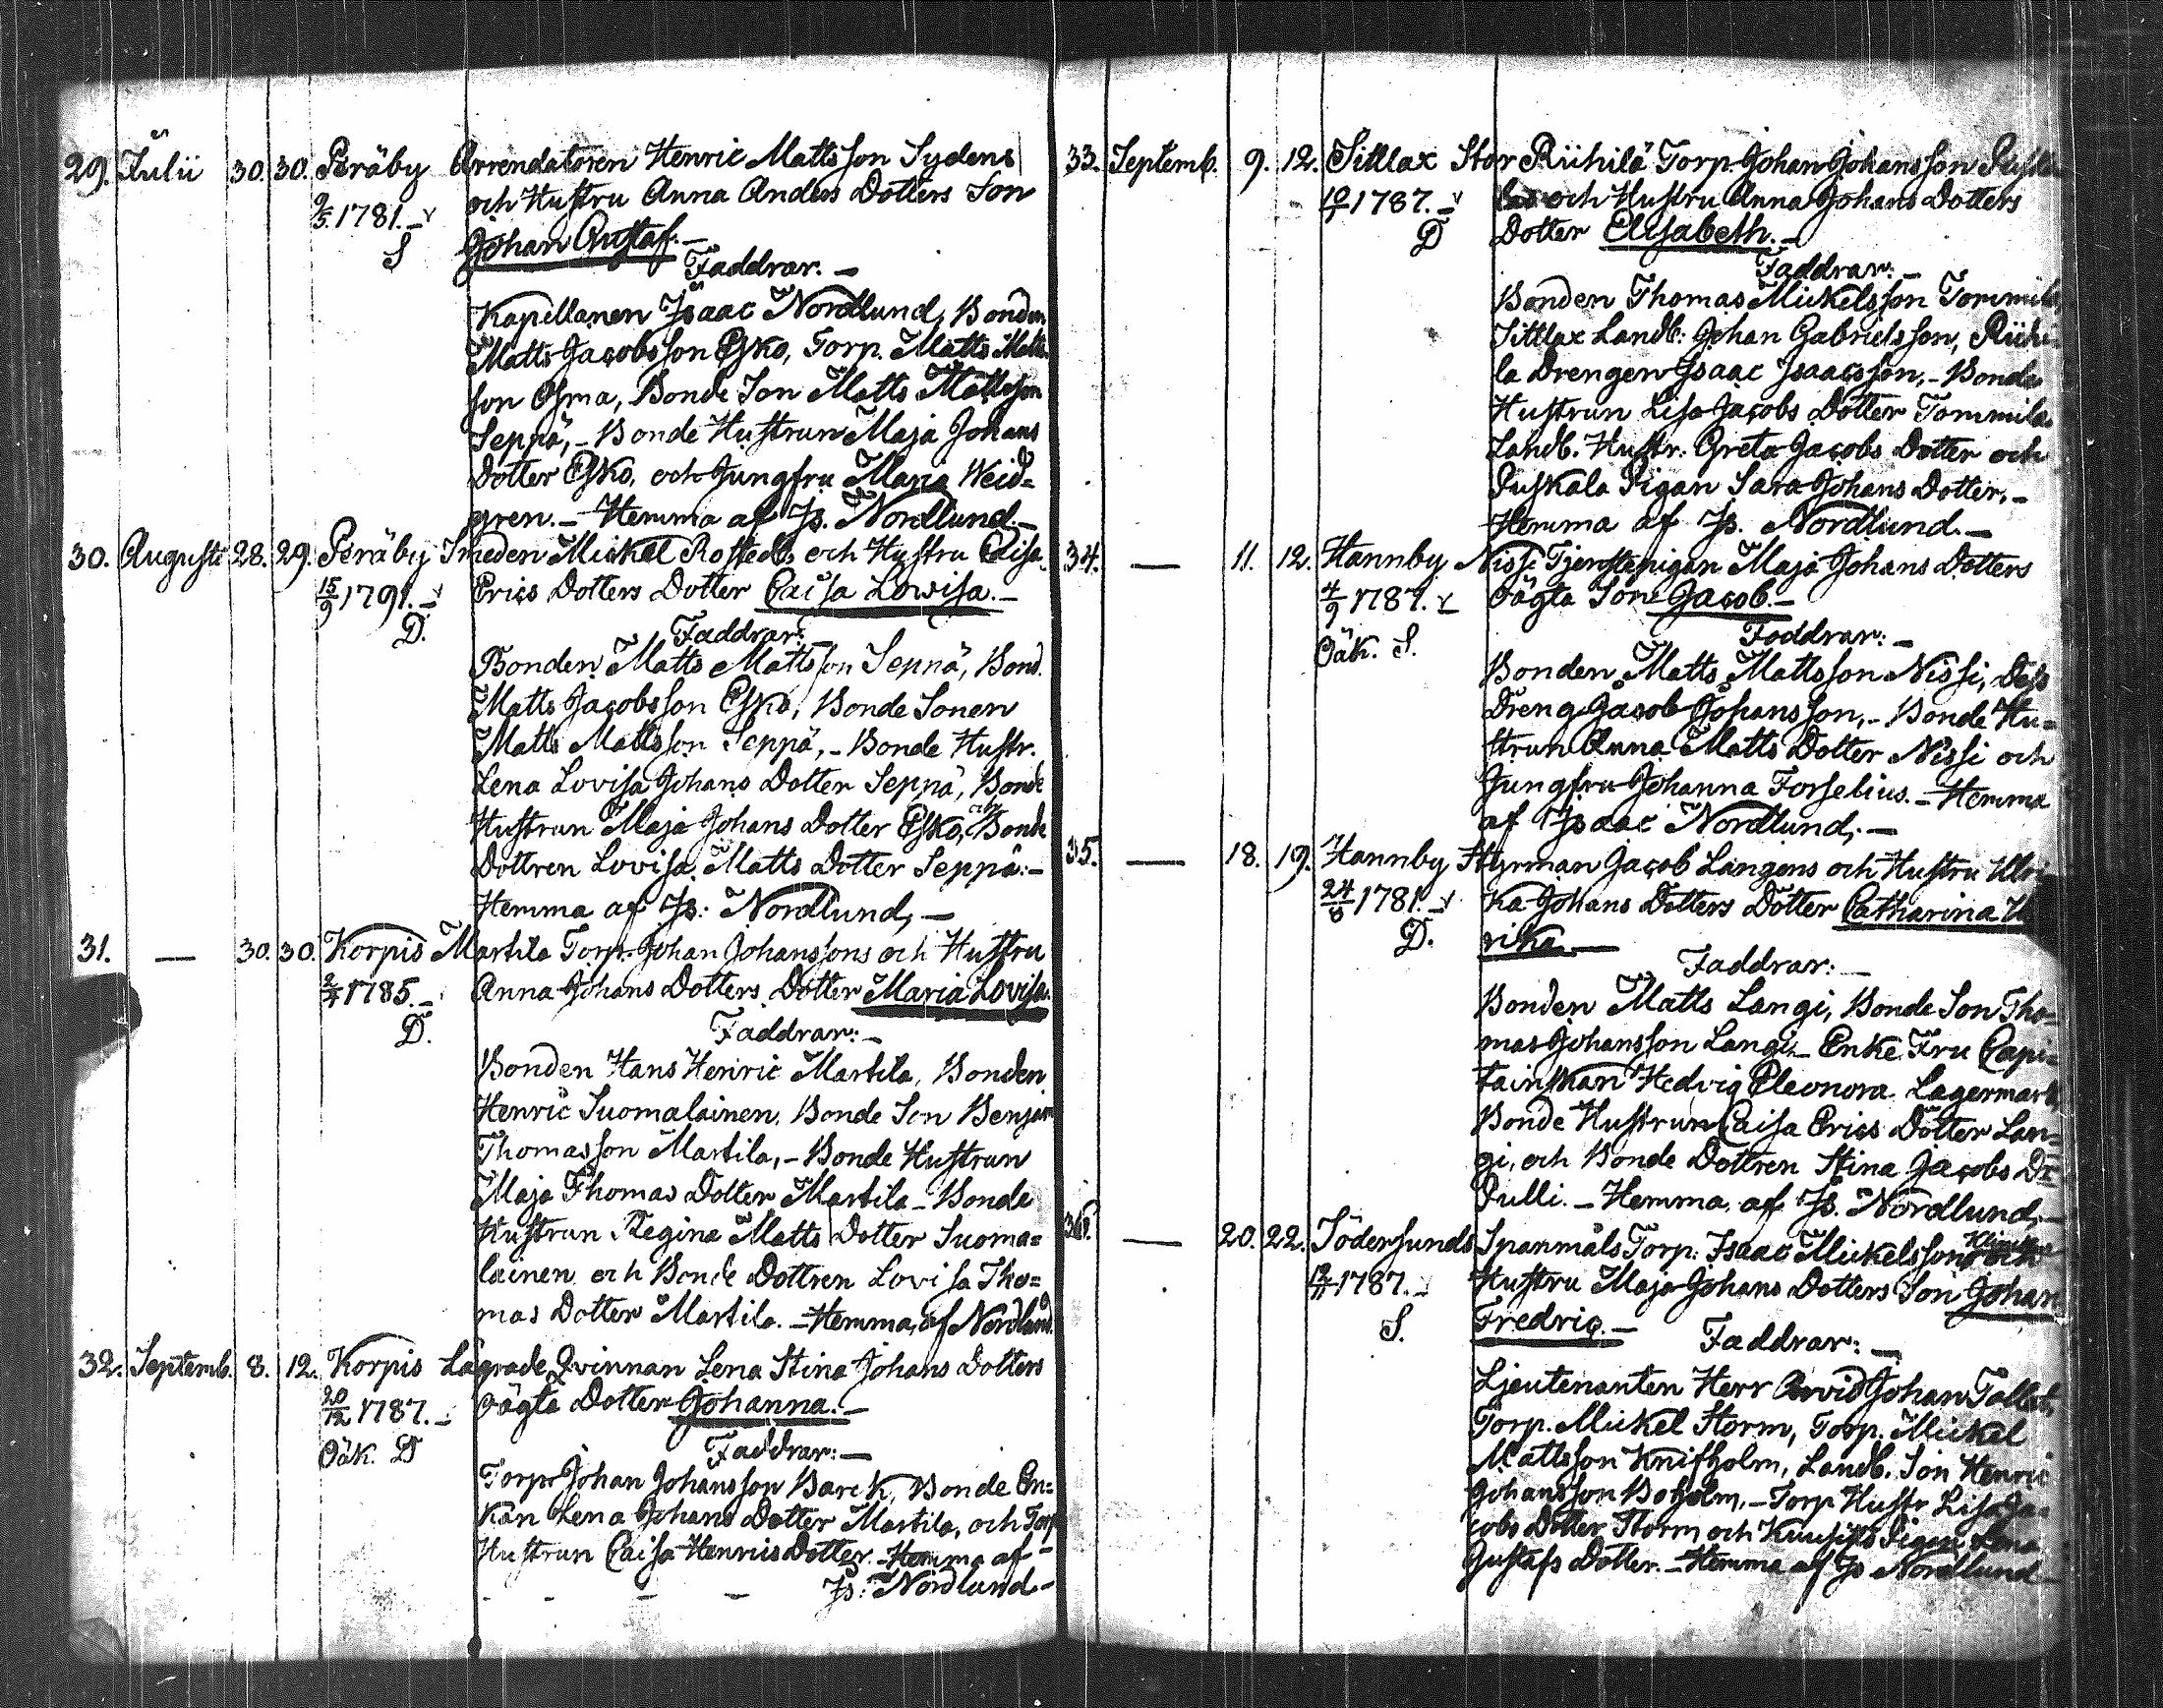 29. Julii 30. 30. Peräby Arrendatoren Henric Mattsson Sydens
9/5. 1781. och Hustru Anna Anders Dotters Son
S Johan Gustaf. –
Faddrar. –
Kapellanen Isaac Nordlund, Bonden
Matts Jacobsson Esko, Torp. Matts Matts
son Osma, Bonde Son Matts Mattsson
Seppä, – Bonde Hustrun Maja Johans
Dotter Esko, och Jungfru Maria Weid=
gren. – Hemma af Is. Nordlund. –
30. Augusti 28. 29. Peräby Smeden Mickel Rosteds och Hustru Caisa
15/9 1791. – Erics Dotters Dotter Caisa Lowisa. –
D.
Faddrar: –
Bonden Matts Mattsson Seppä, Bond.
Matts Jacobsson Esko, Bonde Sonen
Matts Mattsson Seppä, – Bonde Hustr.
Lena Lovisa Johans Dotter Seppä, Bonde
Hustrun Maja Johans Dotter Esko, och Bonde
Dottren Lovisa Matts Dotter Seppä. –
Hemma af Is: Nordlund, –
31. — 30. 30. Korpis Martila Torp. Johan Johanssons och Hustru
1785. – Anna Johans Dotters Dotter Maria Lovisa.
D.
Faddrar: –
Bonden Hans Henric Martila, Bonden
Henric Suomalainen, Bonde Son Benjam
Thomasson Martila, – Bonde Hustrun
Maja Thomas Dotter Martila – Bonde
Hustrun Regina Matts Dotter Suoma=
lainen och Bonde Dottren Lovisa Tho=
mas Dotter Martila. – Hemma af Nordlund.
32. Septemb. 8. 12. Korpis Lägrade Qvinnan Lena Stina Johans Dotters
20/12 1787. – oägta Dotter Johanna. –
Oäk. D
Faddrar: –
Torp. Johan Johansson Barck, Bonde En=
kan Lena Johans Dotter Martila, och Torp
Hustrun Caisa Henrics Dotter. – Hemma af –
Is: Nordlund –
33. Septemb. 9. 12. Sittlax Stor Riihilä Torp. Johan Johansson
1787. – och Hustru Anna Johans Dotters
D Dotter Elisabeth. –
Faddrar: –
Bonden Thomas Mickelsson Tommila,
Sittlax Landb: Johan Gabrielsson, Riihi=
la Drengen Isaac Isaacsson, – Bonde
Hustrun Lisa Jacobs Dotter Tommila
Landb. Hustr. Greta Jacobs Dotter och
Puskala Pigan Sara Johans Dotter, –
Hemma af Is. Nordlund. –
34. — 11. 12. Hannby Nissi Tjenstepigan Maja Johans Dotters
4/9 1787. oägta Son Jacob. –
Oäk. S.
Faddrar: –
Bonden Matts Mattsson Nissi, Dess
Dreng Jacob Johansson, – Bonde Hu=
strun Anna Matts Dotter Nissi och
Jungfru Johanna Forselius. – Hemma
af Isaac Nordlund, –
35. — 18. 19. Hannby Styrman Jacob Langens och Hustru Ulri
24/8 1781. – ka Johans Dotters Dotter Catharina Ul
D. rika. –
Faddrar: –
Bonden Matts Langi, Bonde Son Tho=
mas Johansson Langi, – Enke Fru Capi=
tainskan Hedvig Eleonora Lagermark
Bonde Hustrun Caisa Erics Dotter Lan=
gi, och Bonde Dottren Stina Jacobs Dr
Pulli. – Hemma af Is. Nordlund, –
36. — 20. 22. Södersunds Spanmåls Torp: Isaac Mickelssons och
1787. – Hustru Maja Johans Dotters Son Johan
S. Fredric. –
Faddrar: –
Ljeutenanten Herr Arvid Johan Tallet,
Torp. Mickel Storm, Torp. Mickel
Mattsson Knifholm, Landb. Son Henric
Johansson Boholm, – Torp Hustr Lisa Ja=
cobs Dotter Storm och Pigan Lena
Gustafs Dotter. – Hemma af Is Nordlund –